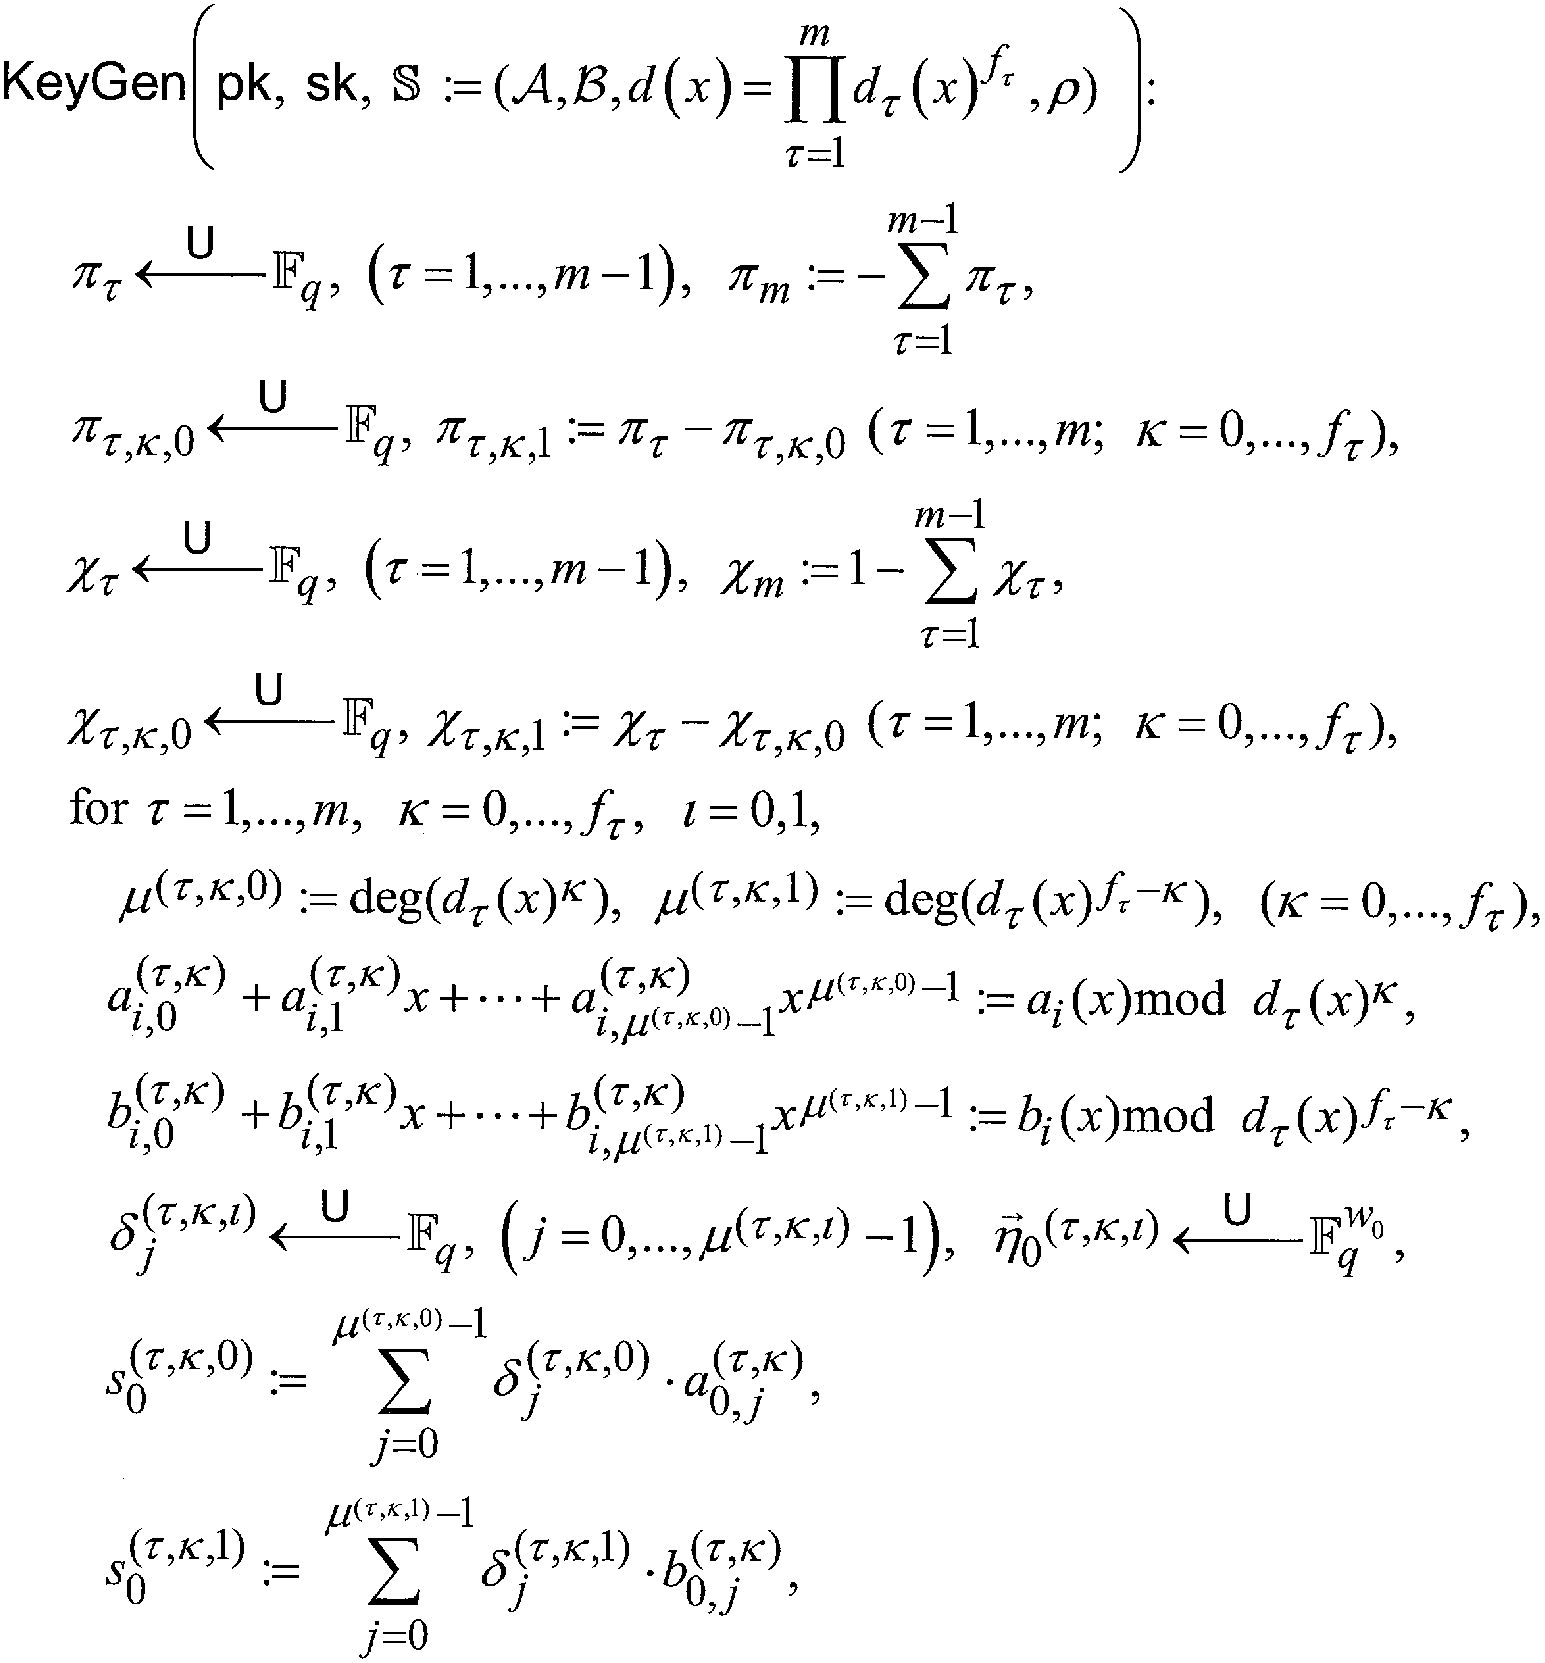 KeyGen( pk, sk, 𝕊 := (𝒜, ℬ, d(x) = ∏_{τ=1}^{m} d_τ(x)^{f_τ}, ρ) ):
π_τ ←U— 𝔽_q, (τ = 1,...,m − 1), π_m := −∑_{τ=1}^{m−1} π_τ,
π_{τ,κ,0} ←U— 𝔽_q, π_{τ,κ,1} := π_τ − π_{τ,κ,0} (τ = 1,...,m; κ = 0,..., f_τ),
χ_τ ←U— 𝔽_q, (τ = 1,...,m − 1), χ_m := 1 − ∑_{τ=1}^{m−1} χ_τ,
χ_{τ,κ,0} ←U— 𝔽_q, χ_{τ,κ,1} := χ_τ − χ_{τ,κ,0} (τ = 1,...,m; κ = 0,..., f_τ),
for τ = 1,...,m, κ = 0,..., f_τ, ι = 0,1,
μ^{(τ,κ,0)} := deg(d_τ(x)^κ), μ^{(τ,κ,1)} := deg(d_τ(x)^{f_τ−κ}), (κ = 0,..., f_τ),
a_{i,0}^{(τ,κ)} + a_{i,1}^{(τ,κ)} x + ⋯ + a_{i,μ^{(τ,κ,0)}−1}^{(τ,κ)} x^{μ^{(τ,κ,0)}−1} := a_i(x) mod d_τ(x)^κ,
b_{i,0}^{(τ,κ)} + b_{i,1}^{(τ,κ)} x + ⋯ + b_{i,μ^{(τ,κ,1)}−1}^{(τ,κ)} x^{μ^{(τ,κ,1)}−1} := b_i(x) mod d_τ(x)^{f_τ−κ},
δ_j^{(τ,κ,ι)} ←U— 𝔽_q, (j = 0,..., μ^{(τ,κ,ι)} − 1), η⃗_0^{(τ,κ,ι)} ←U— 𝔽_q^{w_0},
s_0^{(τ,κ,0)} := ∑_{j=0}^{μ^{(τ,κ,0)}−1} δ_j^{(τ,κ,0)} · a_{0,j}^{(τ,κ)},
s_0^{(τ,κ,1)} := ∑_{j=0}^{μ^{(τ,κ,1)}−1} δ_j^{(τ,κ,1)} · b_{0,j}^{(τ,κ)},